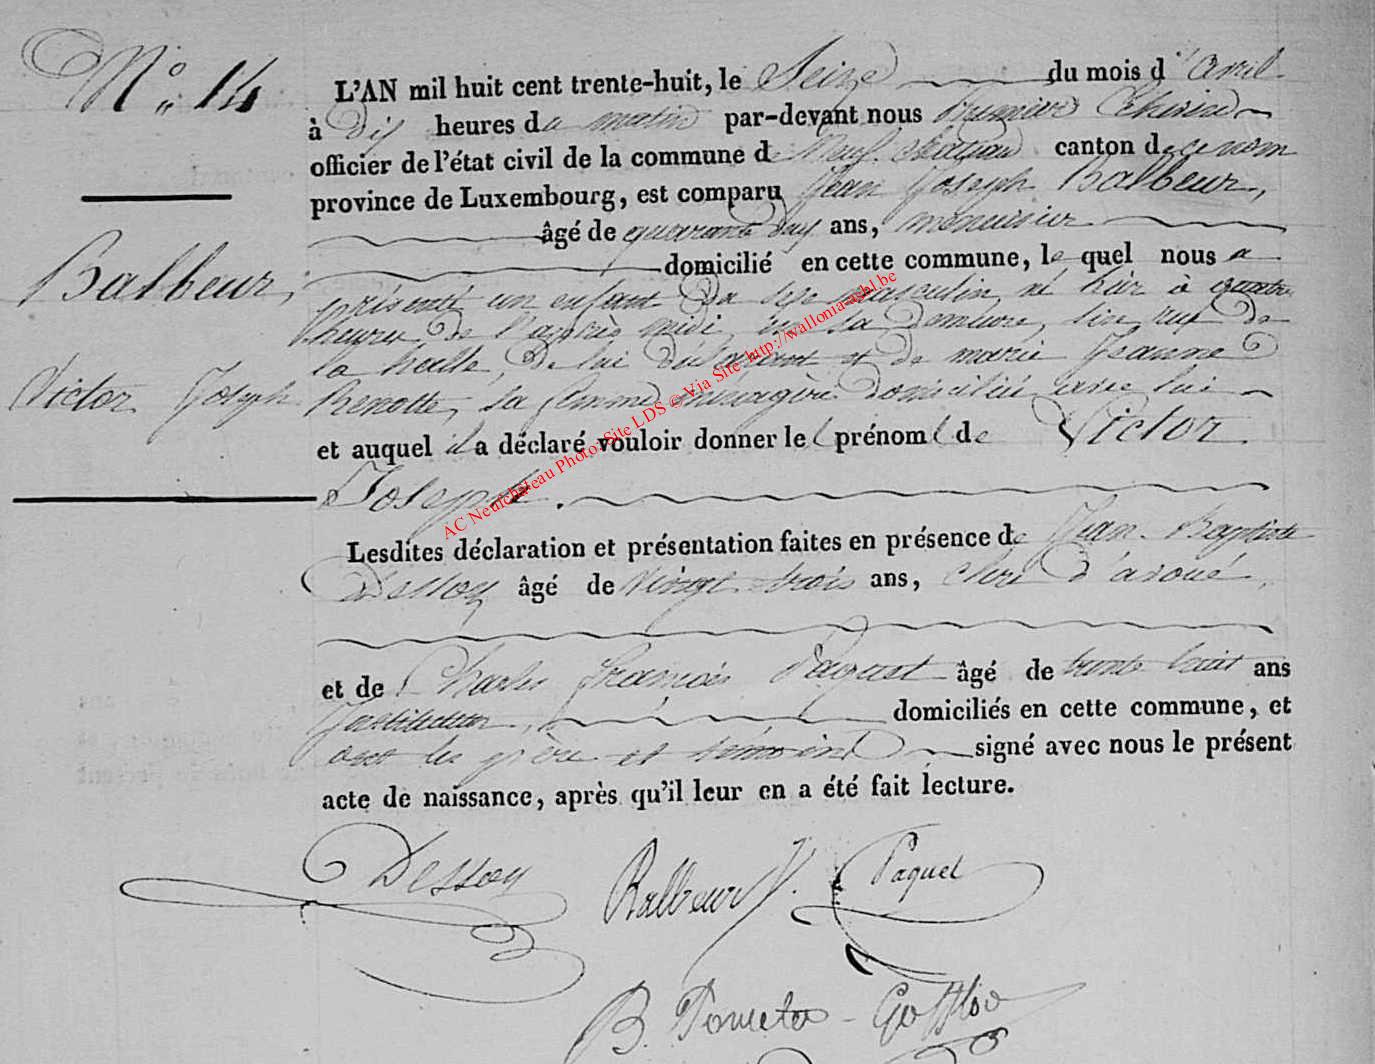 N° 14
Balbeur,
Victor Joseph
L'AN mil huit cent trente-huit, le Seize du mois d'avril
à dix heures du matin par-devant nous premier Echevin
officier de l'état civil de la commune de Neufchateau canton de ce nom
province de Luxembourg, est comparu Jean Joseph Balbeur,
âgé de quarante ans, menuisier
domicilié en cette commune, lequel nous a
présenté un enfant du sexe masculin, né hier à quatre
heures de l'après midi, en sa demeure, sise rue de
la halle, de lui déclarant et de marie Jeanne
Renotte, sa femme ménagère domiciliée avec lui
et auquel il a déclaré vouloir donner le prénom de Victor
Joseph.
Lesdites déclaration et présentation faites en présence de Jean-Baptiste
Dessoy âgé de vingt trois ans, clerc d'avoué,
et de Charles François Paquet âgé de trente huit ans
Instituteur, domiciliés en cette commune, et
ont les père et témoins signé avec nous le présent
acte de naissance, après qu'il leur en a été fait lecture.
Dessoy Balbeur J. Paquet
B. -
AC Neufchateau Photo: Site LDS © Via Site http://wallonia-asbl.be